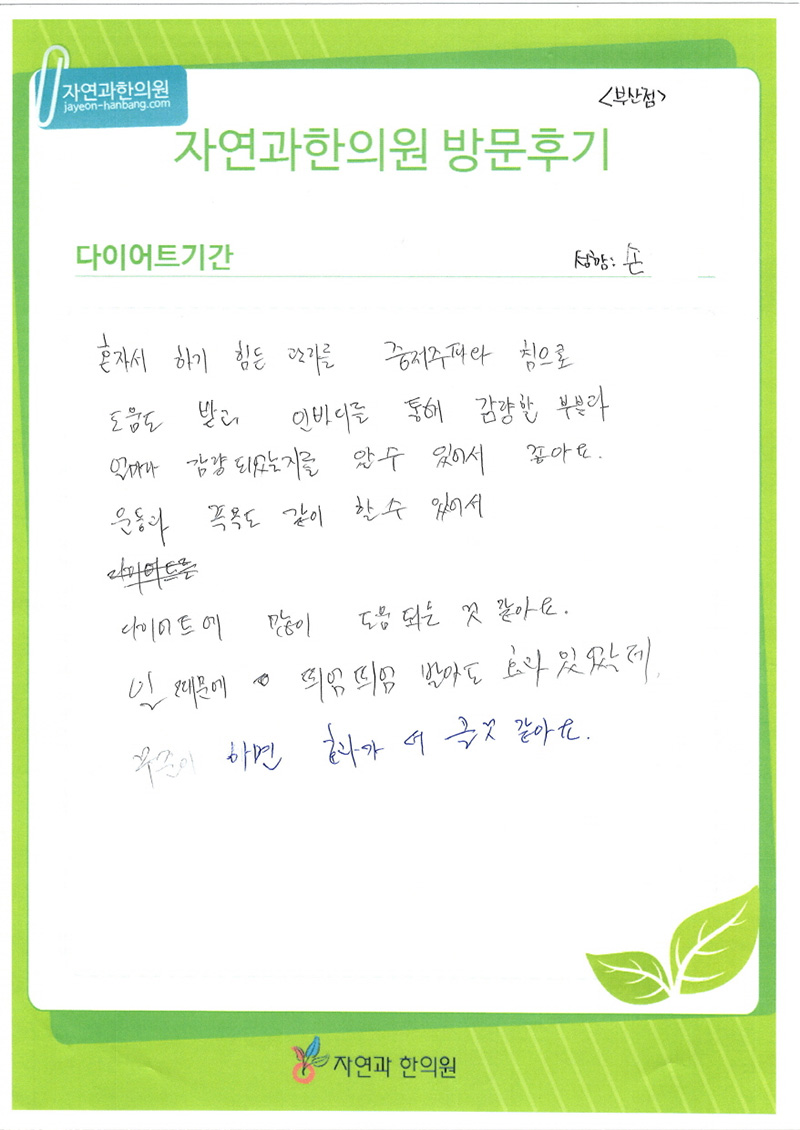 자연과한의원
jayeon-hanbang.com
<부산점>
자연과한의원 방문후기
다이어트기간
성함: 손
혼자서 하기 힘든 관리를 중저주파와 침으로
도움도 받고 인바디를 통해 감량할 부분과
얼마나 감량 되었는지를 알 수 있어서 좋아요.
운동과 족욕도 같이 할 수 있어서
다이어트를
다이어트에 많이 도움 되는 것 같아요.
일 때문에 띄엄띄엄 받아도 효과 있었는데,
꾸준히 하면 효과가 더 클것 같아요.
자연과 한의원